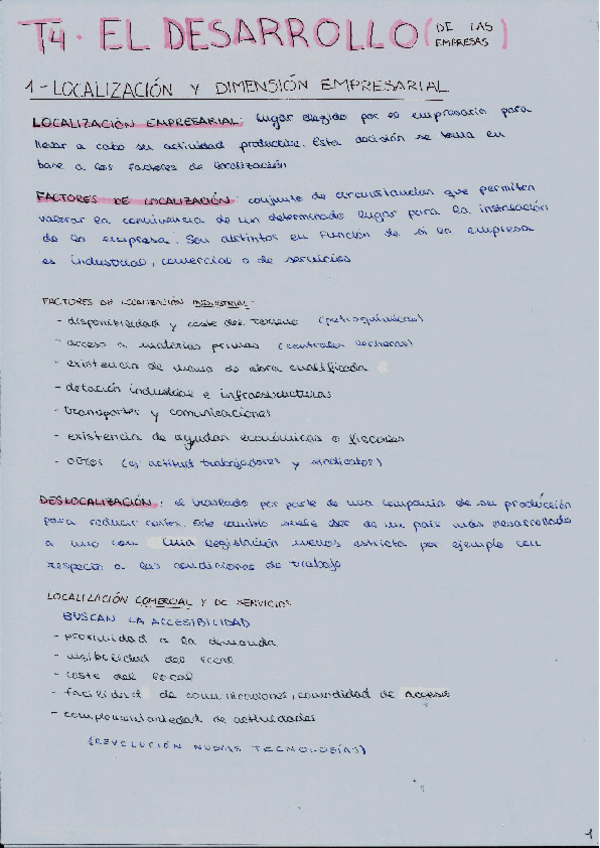 T4. EL DESARROLLO (DE LAS EMPRESAS)
1-LOCALIZACIÓN Y DIMENSIÓN EMPRESARIAL
LOCALIZACIÓN EMPRESARIAL: lugar elegido por el empresario para
llevar a cabo su actividad productiva. Esta decisión se toma en
base a los factores de localización
FACTORES DE LOCALIZACIÓN: conjunto de circunstancias que permiten
valorar la conviniencia de un determinado lugar para la instalación
de la empresa. Son distintos en función de si la empresa
es industrial, comercial o de servicios
FACTORES DE LOCALIZACIÓN INDUSTRIAL:
- disponibilidad y coste del terreno (petroquímicas)
- acceso a materias primas (centrales lecheras)
- existencia de mano de obra cualificada
- dotación industrial e infraestructuras
- transportes y comunicaciones
- existencia de ayudas económicas o fiscales
- otros (ej actitud trabajadores y sindicatos)
DESLOCALIZACIÓN: el traslado por parte de una compañía de su producción
para reducir costes. Este cambio suele ser de un país más desarrollado
a uno con una legislación menos estricta por ejemplo con
respecto a las condiciones de trabajo
LOCALIZACIÓN COMERCIAL Y DE SERVICIOS
BUSCAN LA ACCESIBILIDAD
- proximidad a la demanda
- visibilidad del local
- coste del local
- facilidad de comunicaciones, comodidad de acceso
- complementariedad de actividades
(REVOLUCIÓN NUEVAS TECNOLOGÍAS)
1